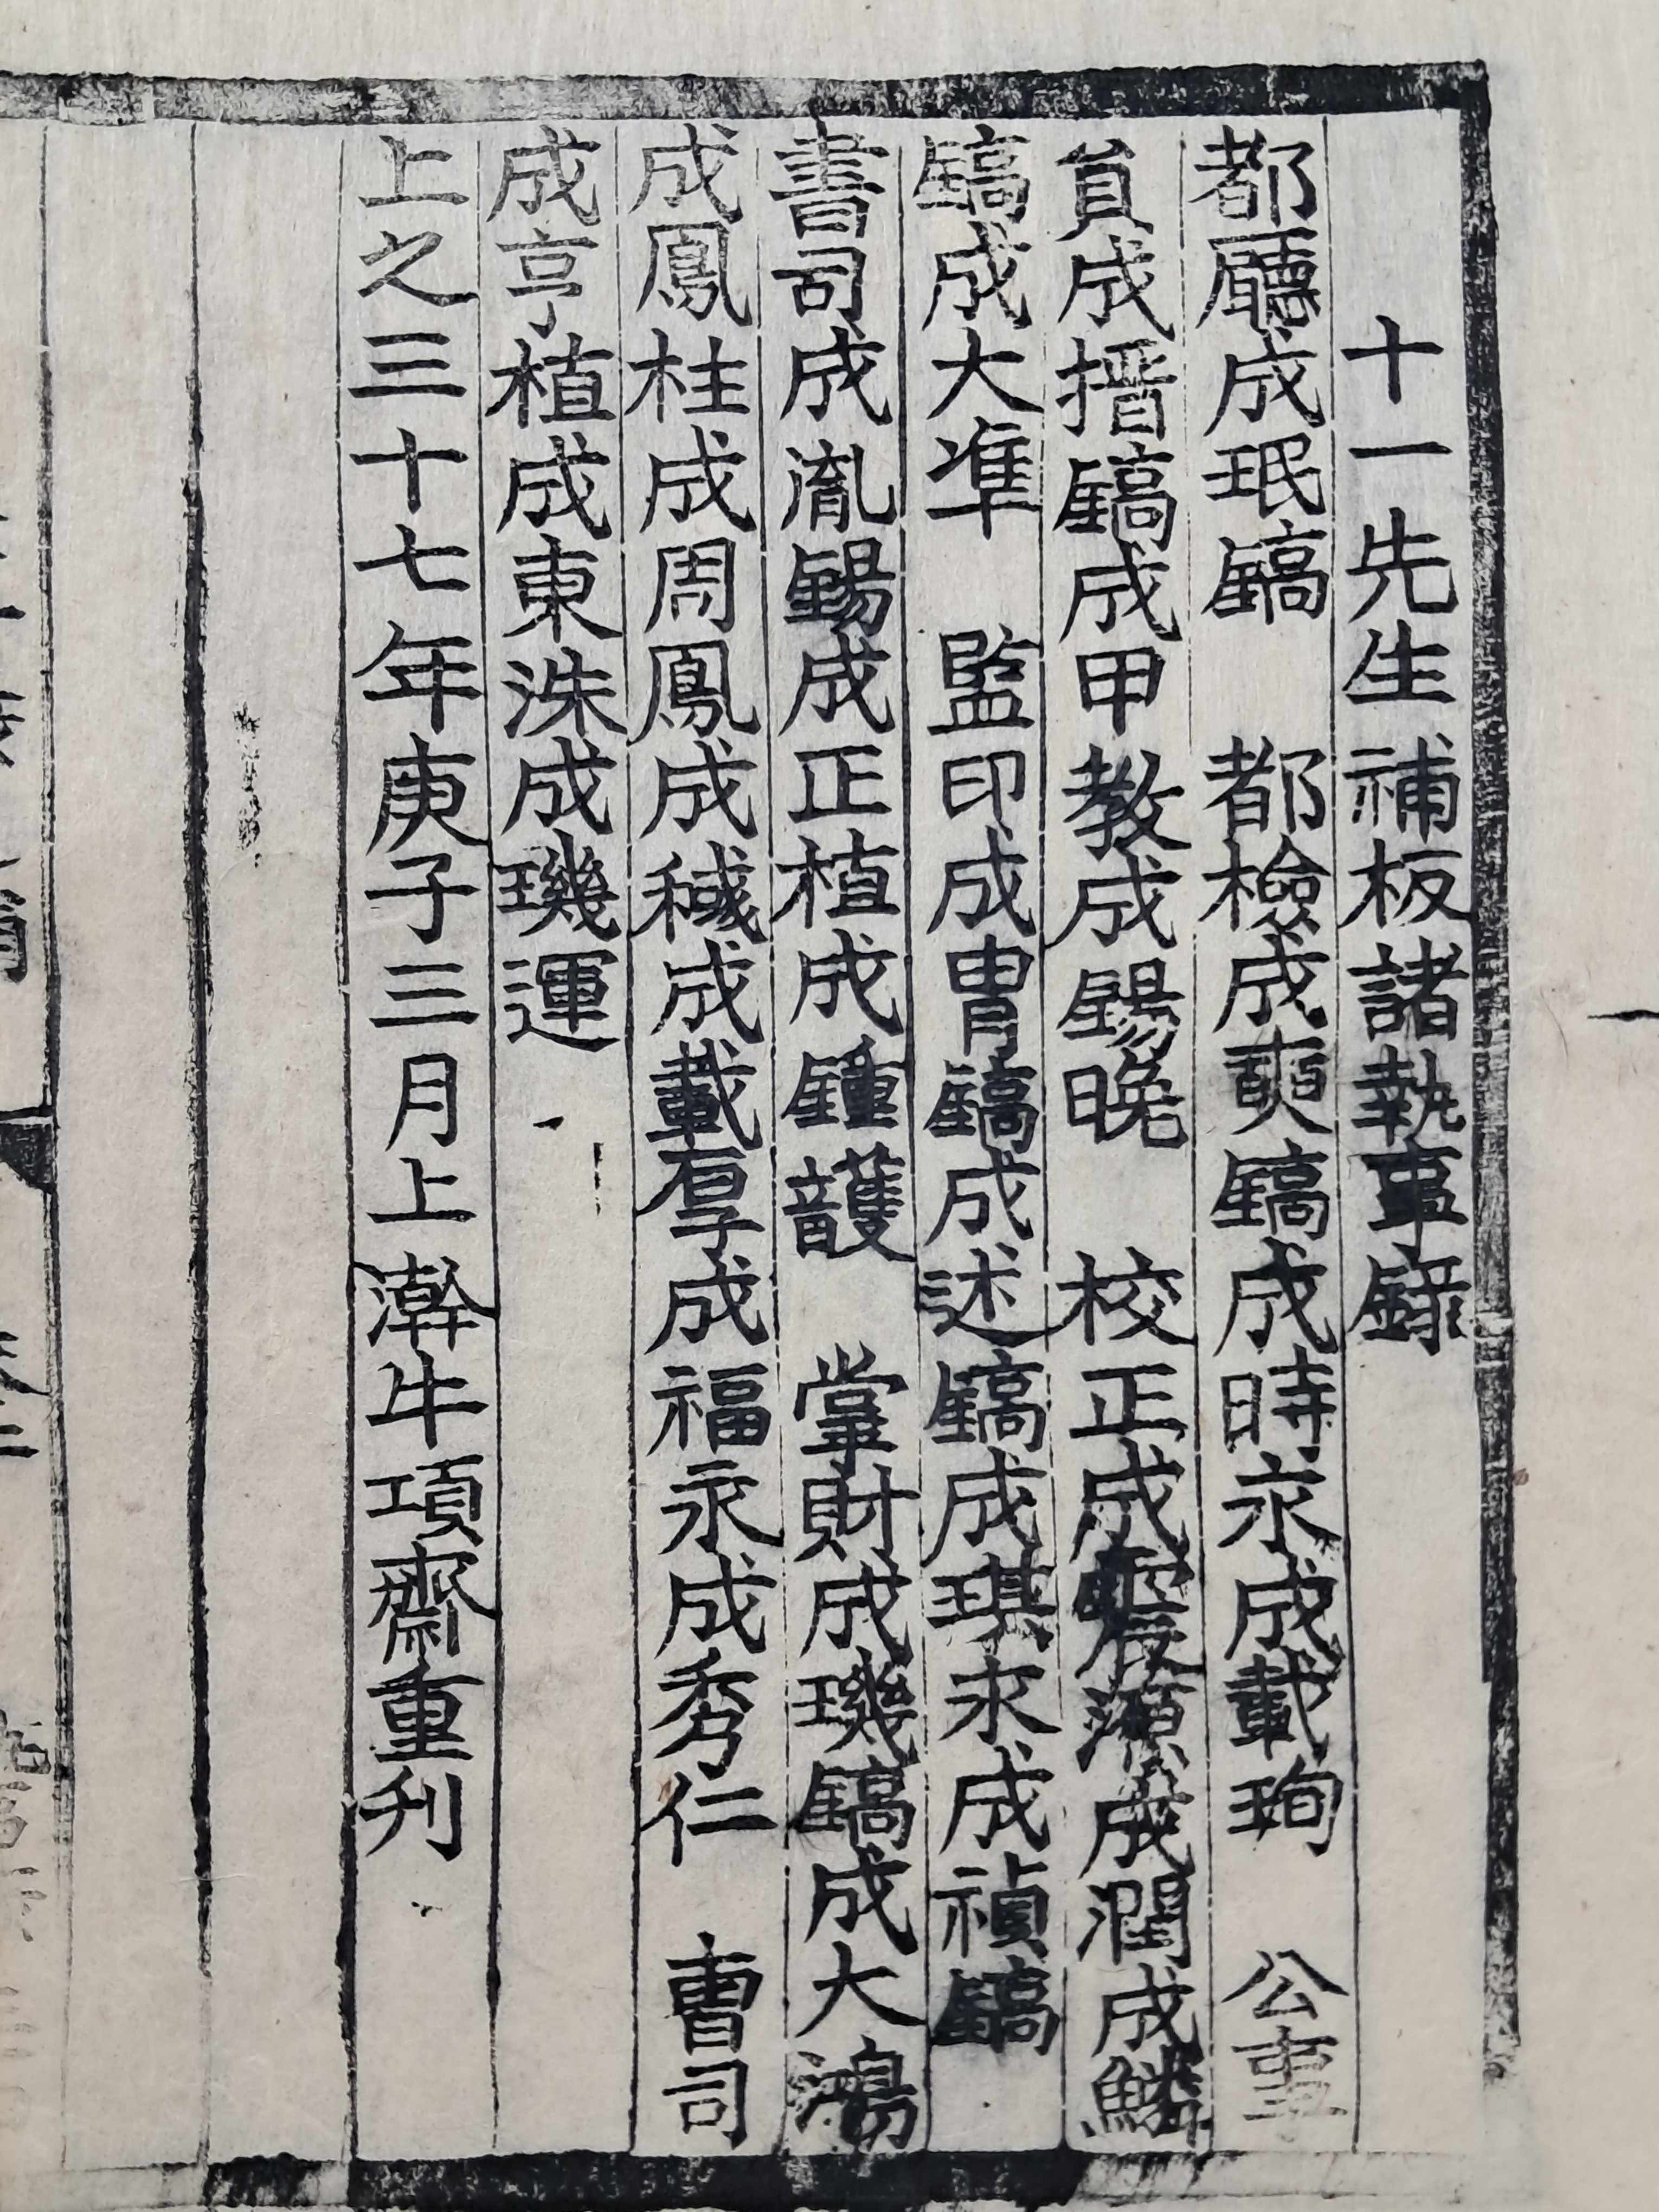 十一先生補板諸執事錄
都廳成珉鎬　都檢成奭鎬成時永成載珣　公事
負成搢鎬成甲教成錫晩　校正成震源成潤成鱗
鎬成大準　監印成冑鎬成述鎬成琪永成禎鎬
書司成胤錫成正植成鍾頀　掌財成璣鎬成大鴻
成鳳柱成周鳳成稶成載厚成福永成秀仁　曹司
成亨植成東洙成璣運
上之三十七年庚子三月上澣牛項齋重刊